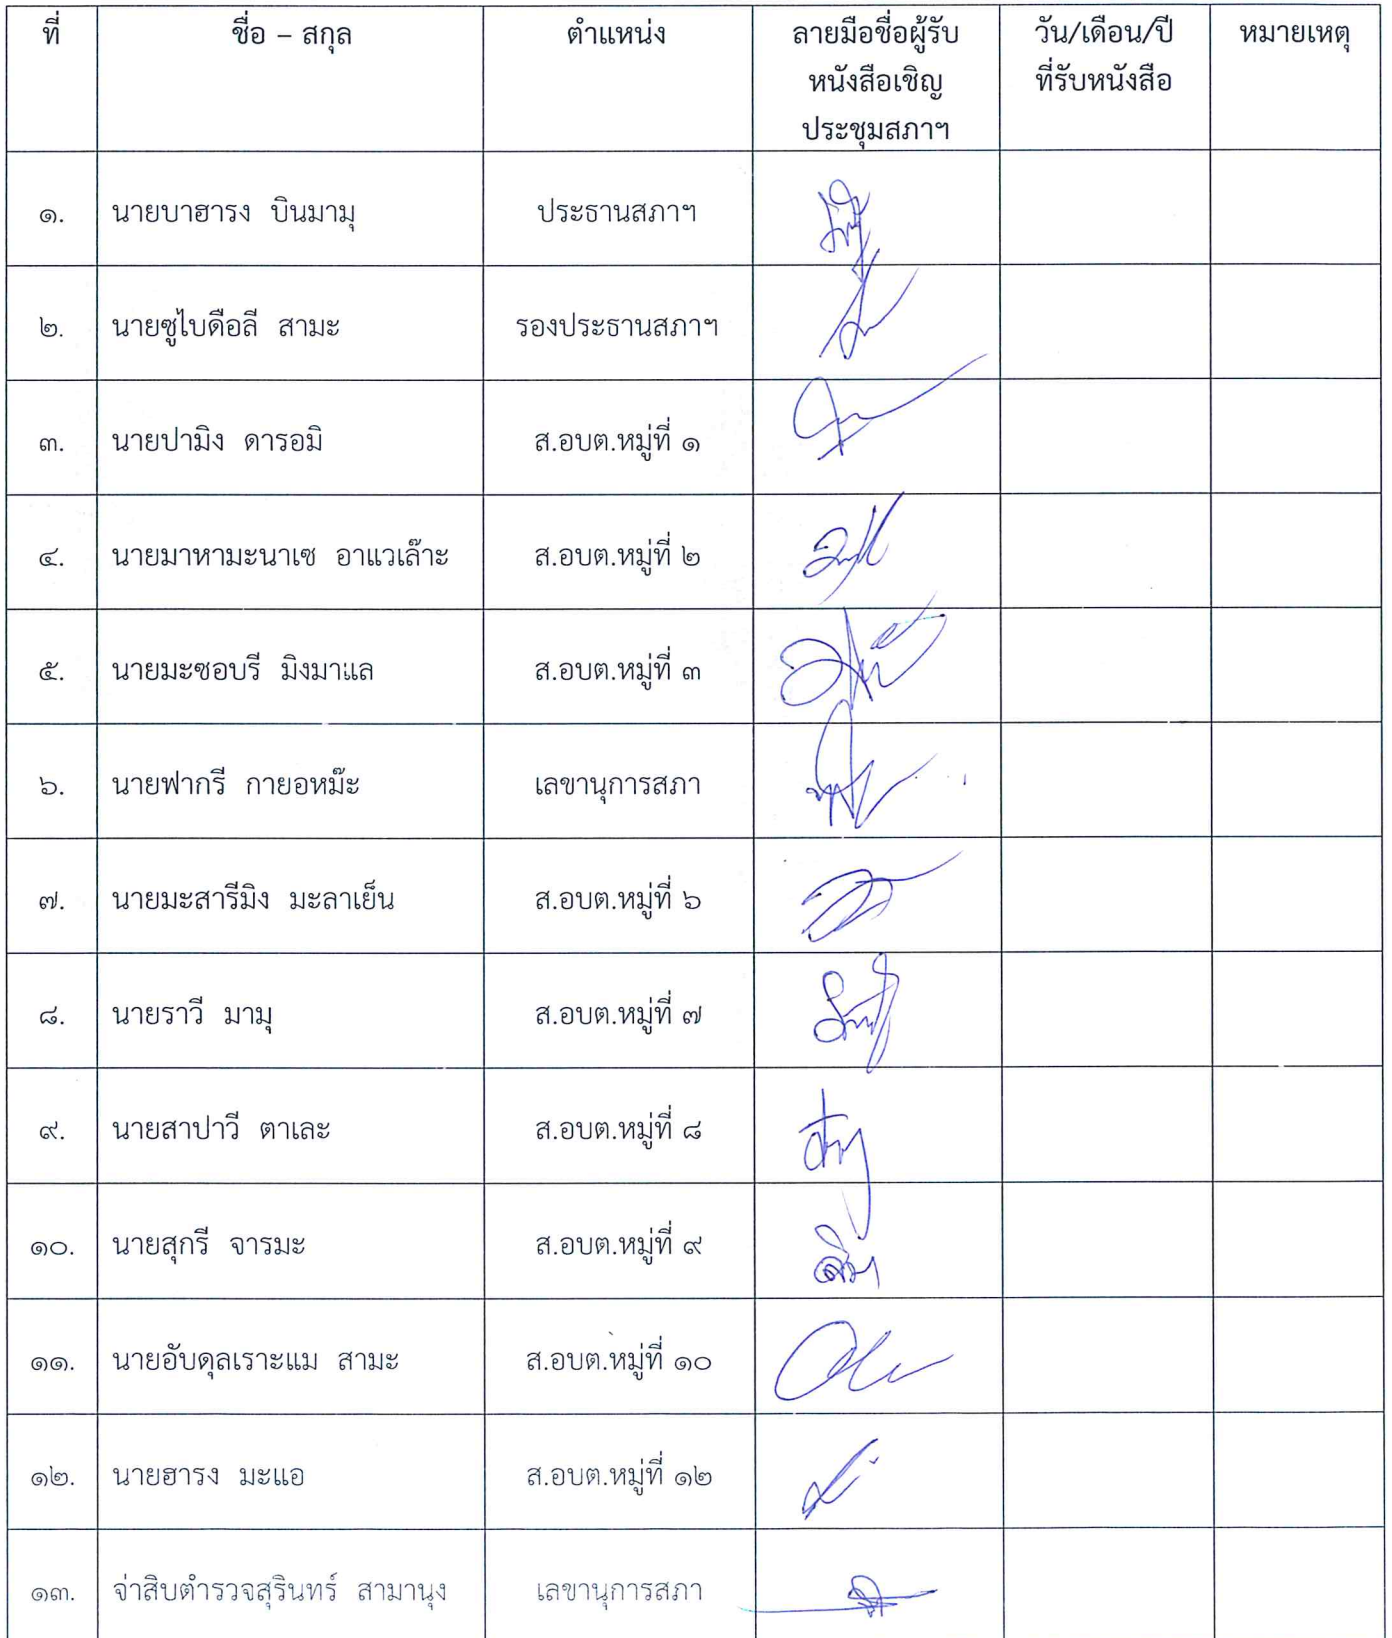 ที่ ชื่อ – สกุล ตำแหน่ง ลายมือชื่อผู้รับ วัน/เดือน/ปี หมายเหตุ
หนังสือเชิญ ที่รับหนังสือ
ประชุมสภาฯ
๑. นายบาฮารง บินมามุ ประธานสภาฯ
๒. นายซูไบดือลี สามะ รองประธานสภาฯ
๓. นายปามิง ดารอมิ ส.อบต.หมู่ที่ ๑
๔. นายมาหามะนาเซ อาแวเล๊าะ ส.อบต.หมู่ที่ ๒
๕. นายมะซอบรี มิงมาแล ส.อบต.หมู่ที่ ๓
๖. นายฟากรี กายอหม๊ะ เลขานุการสภา
๗. นายมะสารีมิง มะลาเย็น ส.อบต.หมู่ที่ ๖
๘. นายราวี มามุ ส.อบต.หมู่ที่ ๗
๙. นายสาปาวี ตาเละ ส.อบต.หมู่ที่ ๘
๑๐. นายสุกรี จารมะ ส.อบต.หมู่ที่ ๙
๑๑. นายอับดุลเราะแม สามะ ส.อบต.หมู่ที่ ๑๐
๑๒. นายฮารง มะแอ ส.อบต.หมู่ที่ ๑๒
๑๓. จ่าสิบตำรวจสุรินทร์ สามานุง เลขานุการสภา